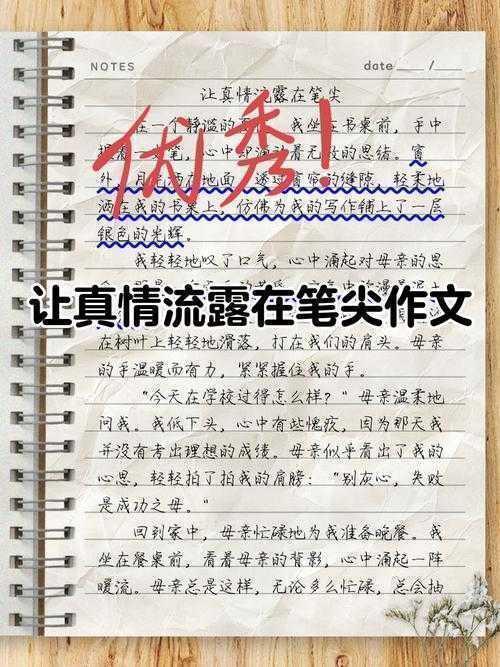 NOTES
date / 
让真情流露在笔尖
优秀!
在一个静谧的 我坐在书桌前，手中
笔，心中却涌动着无数的思绪。窗
外，月光洒在地面，透过窗帘的缝隙，轻柔地
洒在我的书桌上，仿佛为我的写作铺上了一层
银色的光辉。
我轻轻地叹了口气，心中涌起对母亲的思
让真情流露在笔尖作文
在树叶上轻轻地滑落，打在我们的肩头。母亲
的手温暖而有力，紧紧握住我的手。
“今天在学校过得怎么样？”母亲温柔地
问我。我低下头，心中有些愧疚，因为那天我
并没有考出理想的成绩。母亲似乎看出了我的
心思，轻轻拍了拍我的肩膀：“别灰心，失败
是成功之母。”
回到家中，母亲忙碌地为我准备晚餐。我
坐在餐桌前，看着母亲的背影，心中涌起一阵
暖流。母亲总是这样，无论多么忙碌，总会抽